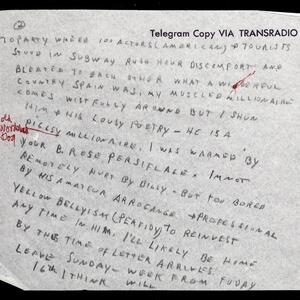 ②
Telegram Copy VIA TRANSRADIO
TO PARTY WHERE 100 ACTORS (AMERICAN) + TOURISTS
STOOD IN SUBWAY RUSH HOUR DISCOMFORT AND
BLEATED TO EACH OTHER WHAT A WONDERFUL
COUNTRY SPAIN WAS. MY MUSCLED MILLIONAIRE
COMES WISTFULLY AROUND BUT I SHUN
HIM + HIS LOUSY POETRY – HE IS A
old
PIGGSY MILLIONAIRE. I WAS WARMED BY
Dog
YOUR B. ROSE PERSIFLAGE. I'M NOT
REMOTELY HURT BY BILLY – BUT TOO BORED
BY HIS AMATEUR ARROGANCE + PROFESSIONAL
YELLOW BELLYISM (PERFIDY) TO REINVEST
ANY TIME IN HIM. I'LL LIKELY BE HOME
BY THE TIME OF LETTER ARRIVES.
LEAVE SUNDAY – WEEK FROM TODAY
16th I THINK WILL